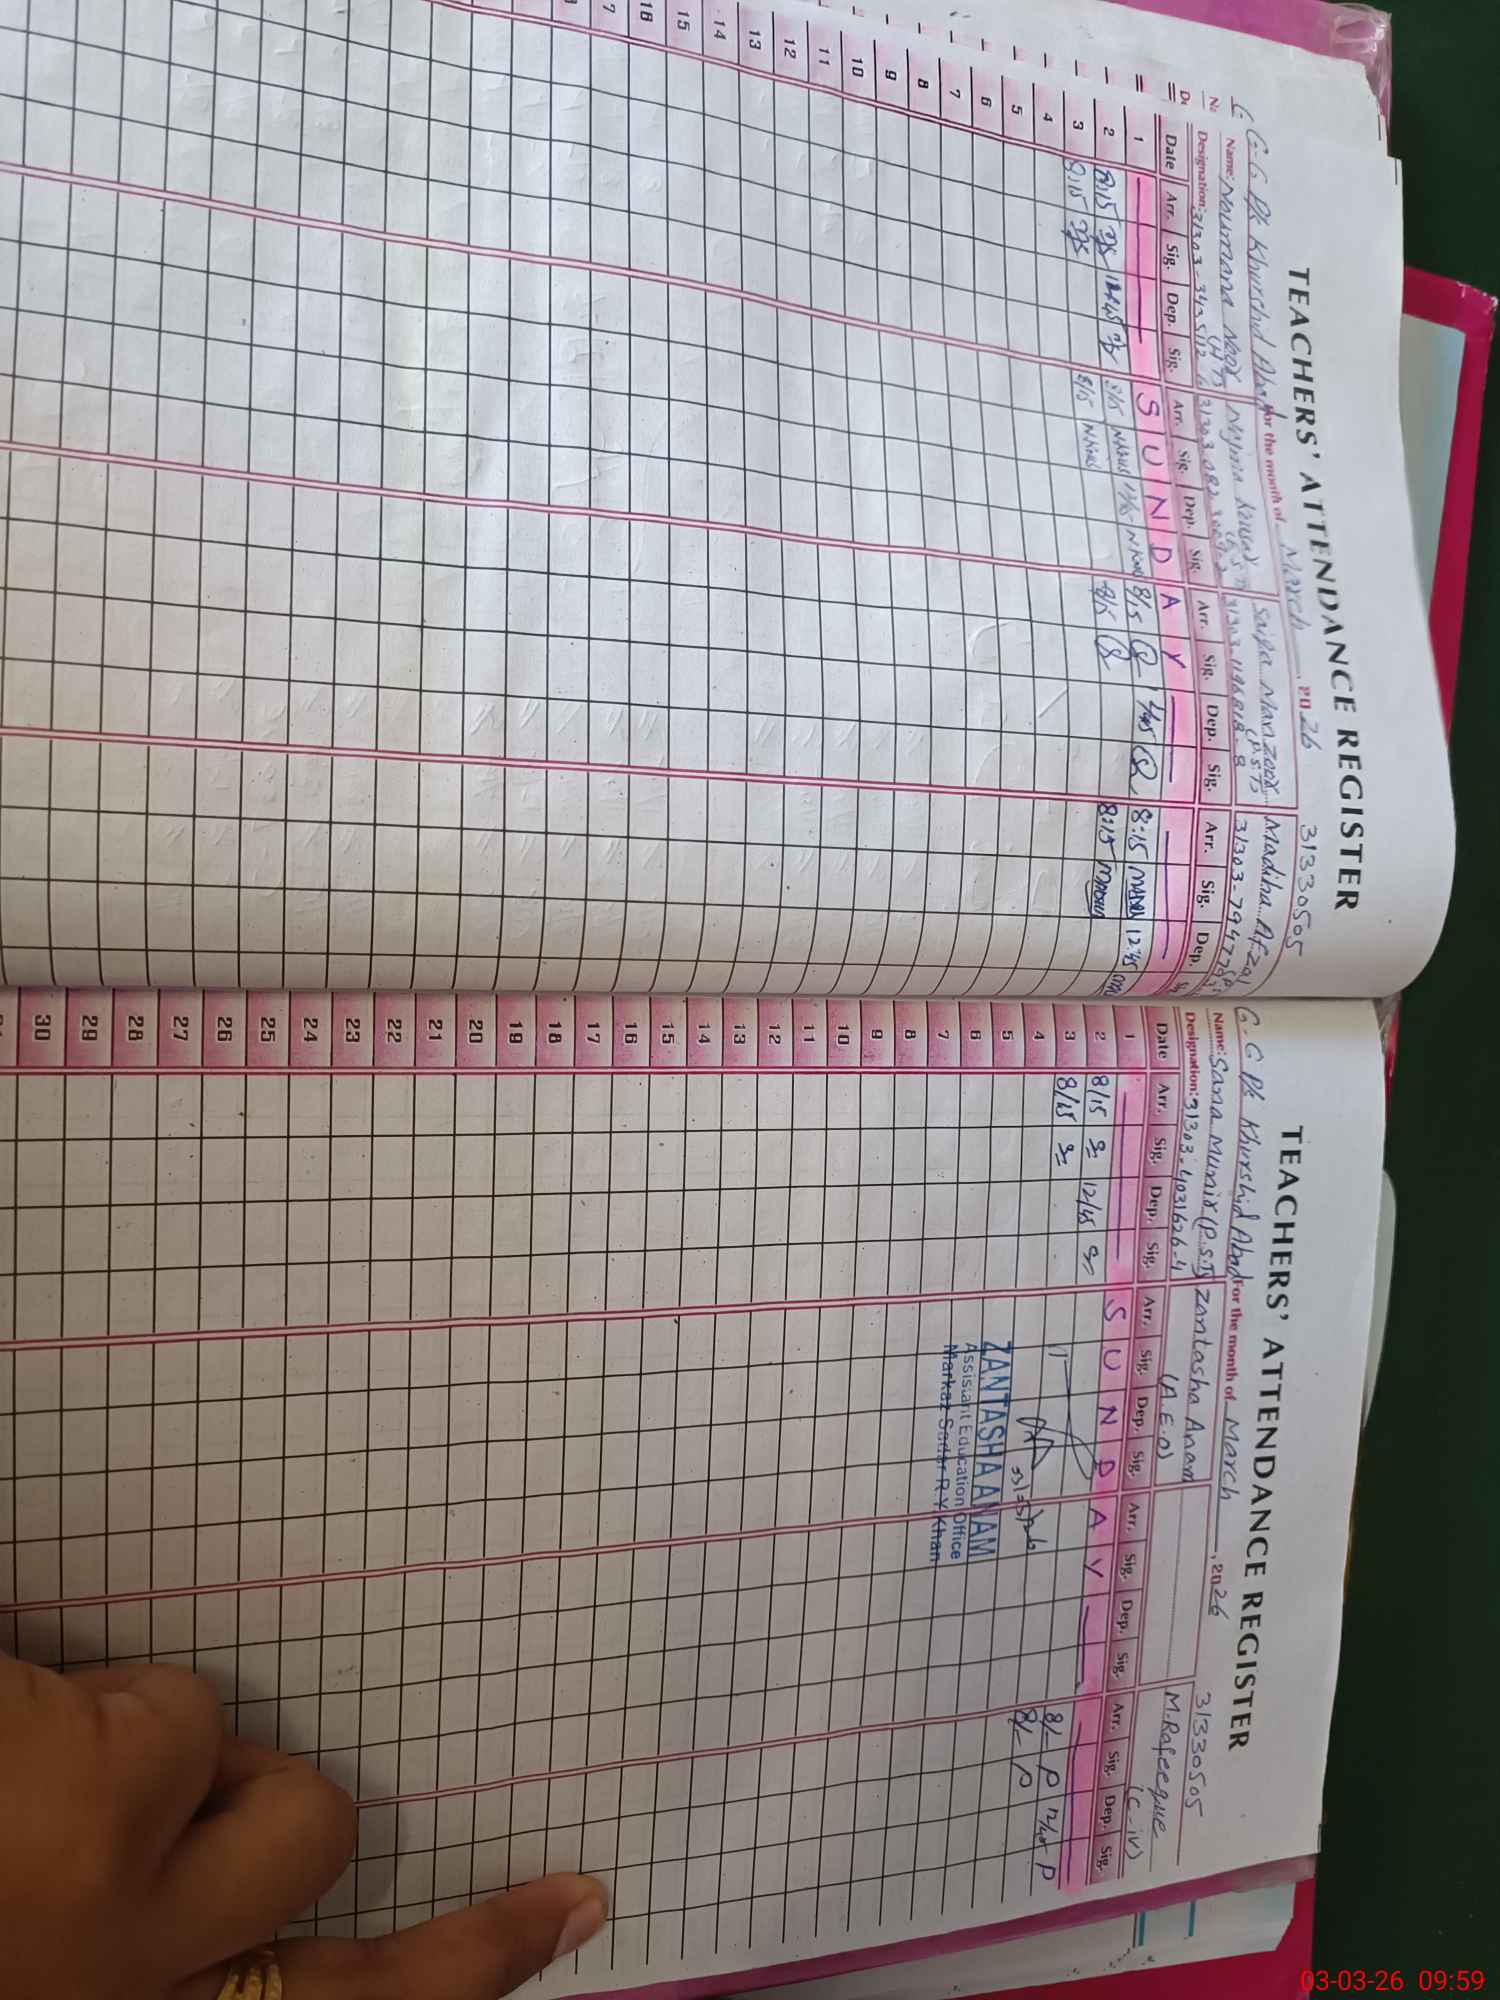 TEACHERS' ATTENDANCE REGISTER
31330505
G. G P/s Khurshid Abad For the month of March, 2026
Name: Noumana Noor (HT) Najma Kausar Saira Manzoor (P.S.T) Madiha Afzal
Designation:
Date Arr. Sig. Dep. Sig. Arr. Sig. Dep. Sig. Arr. Sig. Dep. Sig. Arr. Sig. Dep.
1 S U N D A Y
2 8:15 12:45 8/15 8/15 8:15 12:45
3 8:15 8/15 8/15 8:15
4
5
6
7
8
9
10
11
12
13
14
15
16
TEACHERS' ATTENDANCE REGISTER
31330505
G. G P/s Khurshid Abad For the month of March, 2026
Name: Sana Munir (P.S.T) Zantasha Anam (A.E.O) M. Rafeeque (C-iv)
Designation: 31303-4031626-4
Date Arr. Sig. Dep. Sig. Arr. Sig. Dep. Sig. Arr. Sig. Dep. Sig. Arr. Sig. Dep. Sig.
1 S U N D A Y
2 8/15 12/45 8/- P 12/45 P
3 8/15 8/- P
4
5
6
7
8
9
10
11
12
13
14
15
16
17
18
19
20
21
22
23
24
25
26
27
28
29
30
ZANTASHA ANAM
Assistant Education Office
Markaz Sadar R Y Khan
03-03-26 09:59